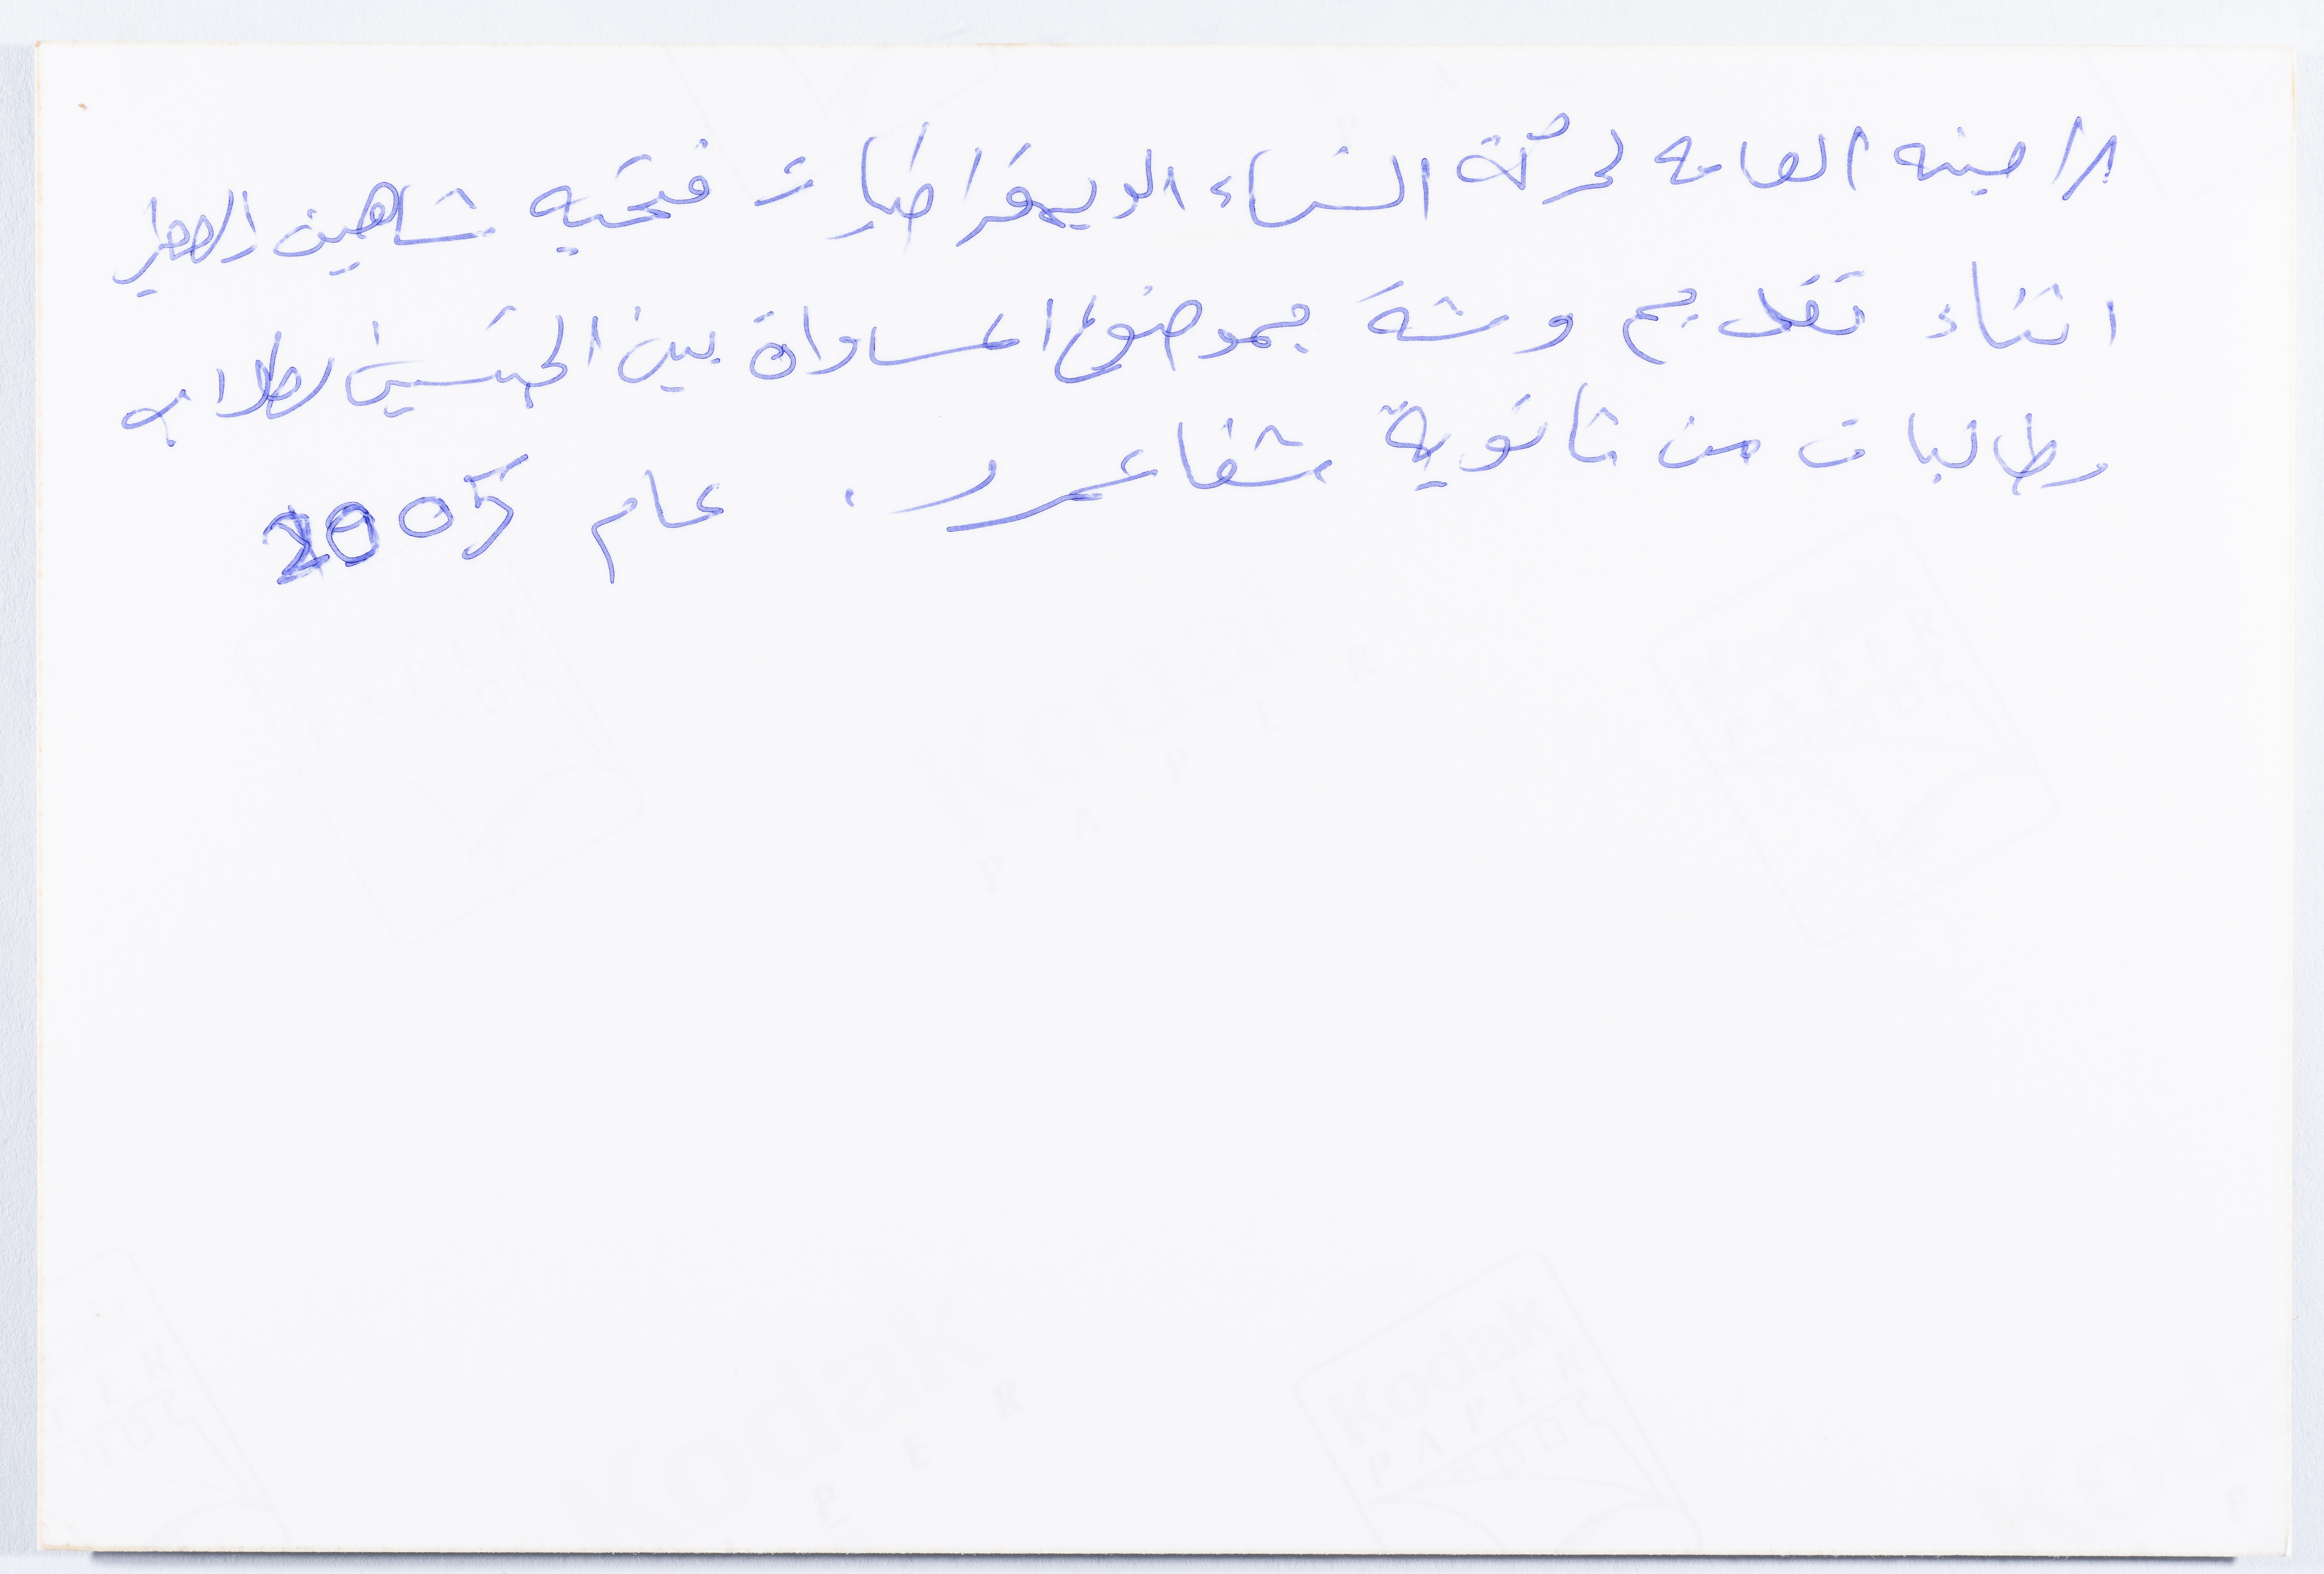 الامينه العامه لحركة النساء الديمقراطيات فتحيه شاهين الصغير
اثناء تقديم ورشة بموضوع المساواة بين الجنسين لطلاب
وطالبات من ثانوية شفاعمرو. عام 2005
Kodak
PAPER